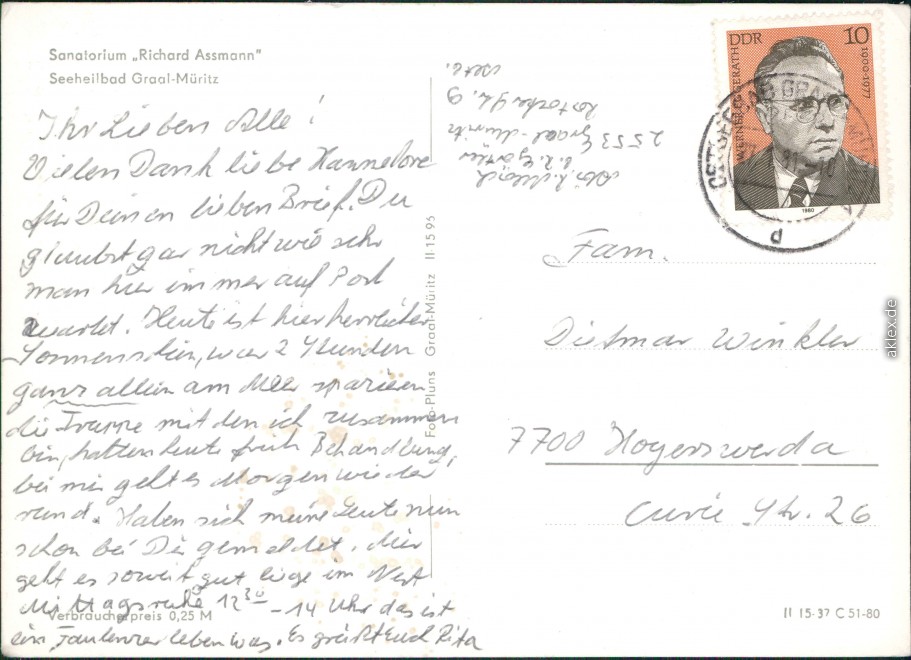 Sanatorium „Richard Assmann"
Seeheilbad Graal-Müritz
Ihr Lieben Alle!
Vielen Dank liebe Hannelore
für Deinen lieben Brief. Du
glaubst gar nicht wie sehr
man hier immer auf Post
wartet. Heute ist hier herrlicher
Sonnenschein, war 2 Stunden
ganz allein am Meer spazieren
die Truppe mit den ich zusammen
bin, hatten heute früh Behandlung,
bei mir geht es Morgen wieder
rund. Haben sich meine Leute nun
schon bei Dir gemeldet. Mir
geht es soweit gut liege im Nest
Mittagsruhe 12 30 - 14 Uhr das ist
ein Faulenzerleben was. Es grüßt Euch Rita
Verbraucherpreis 0,25 M
Foto-Pluns Graal-Müritz II 15 95
2553 Graal-Müritz
Rostocker Str. 9
DDR 10
WERNER EGGERATH
1900-1977
1980
Fam.
Dietmar Winkler
7700 Hoyerswerda
Curie Str. 26
II 15-37 C 51-80
aklex.de